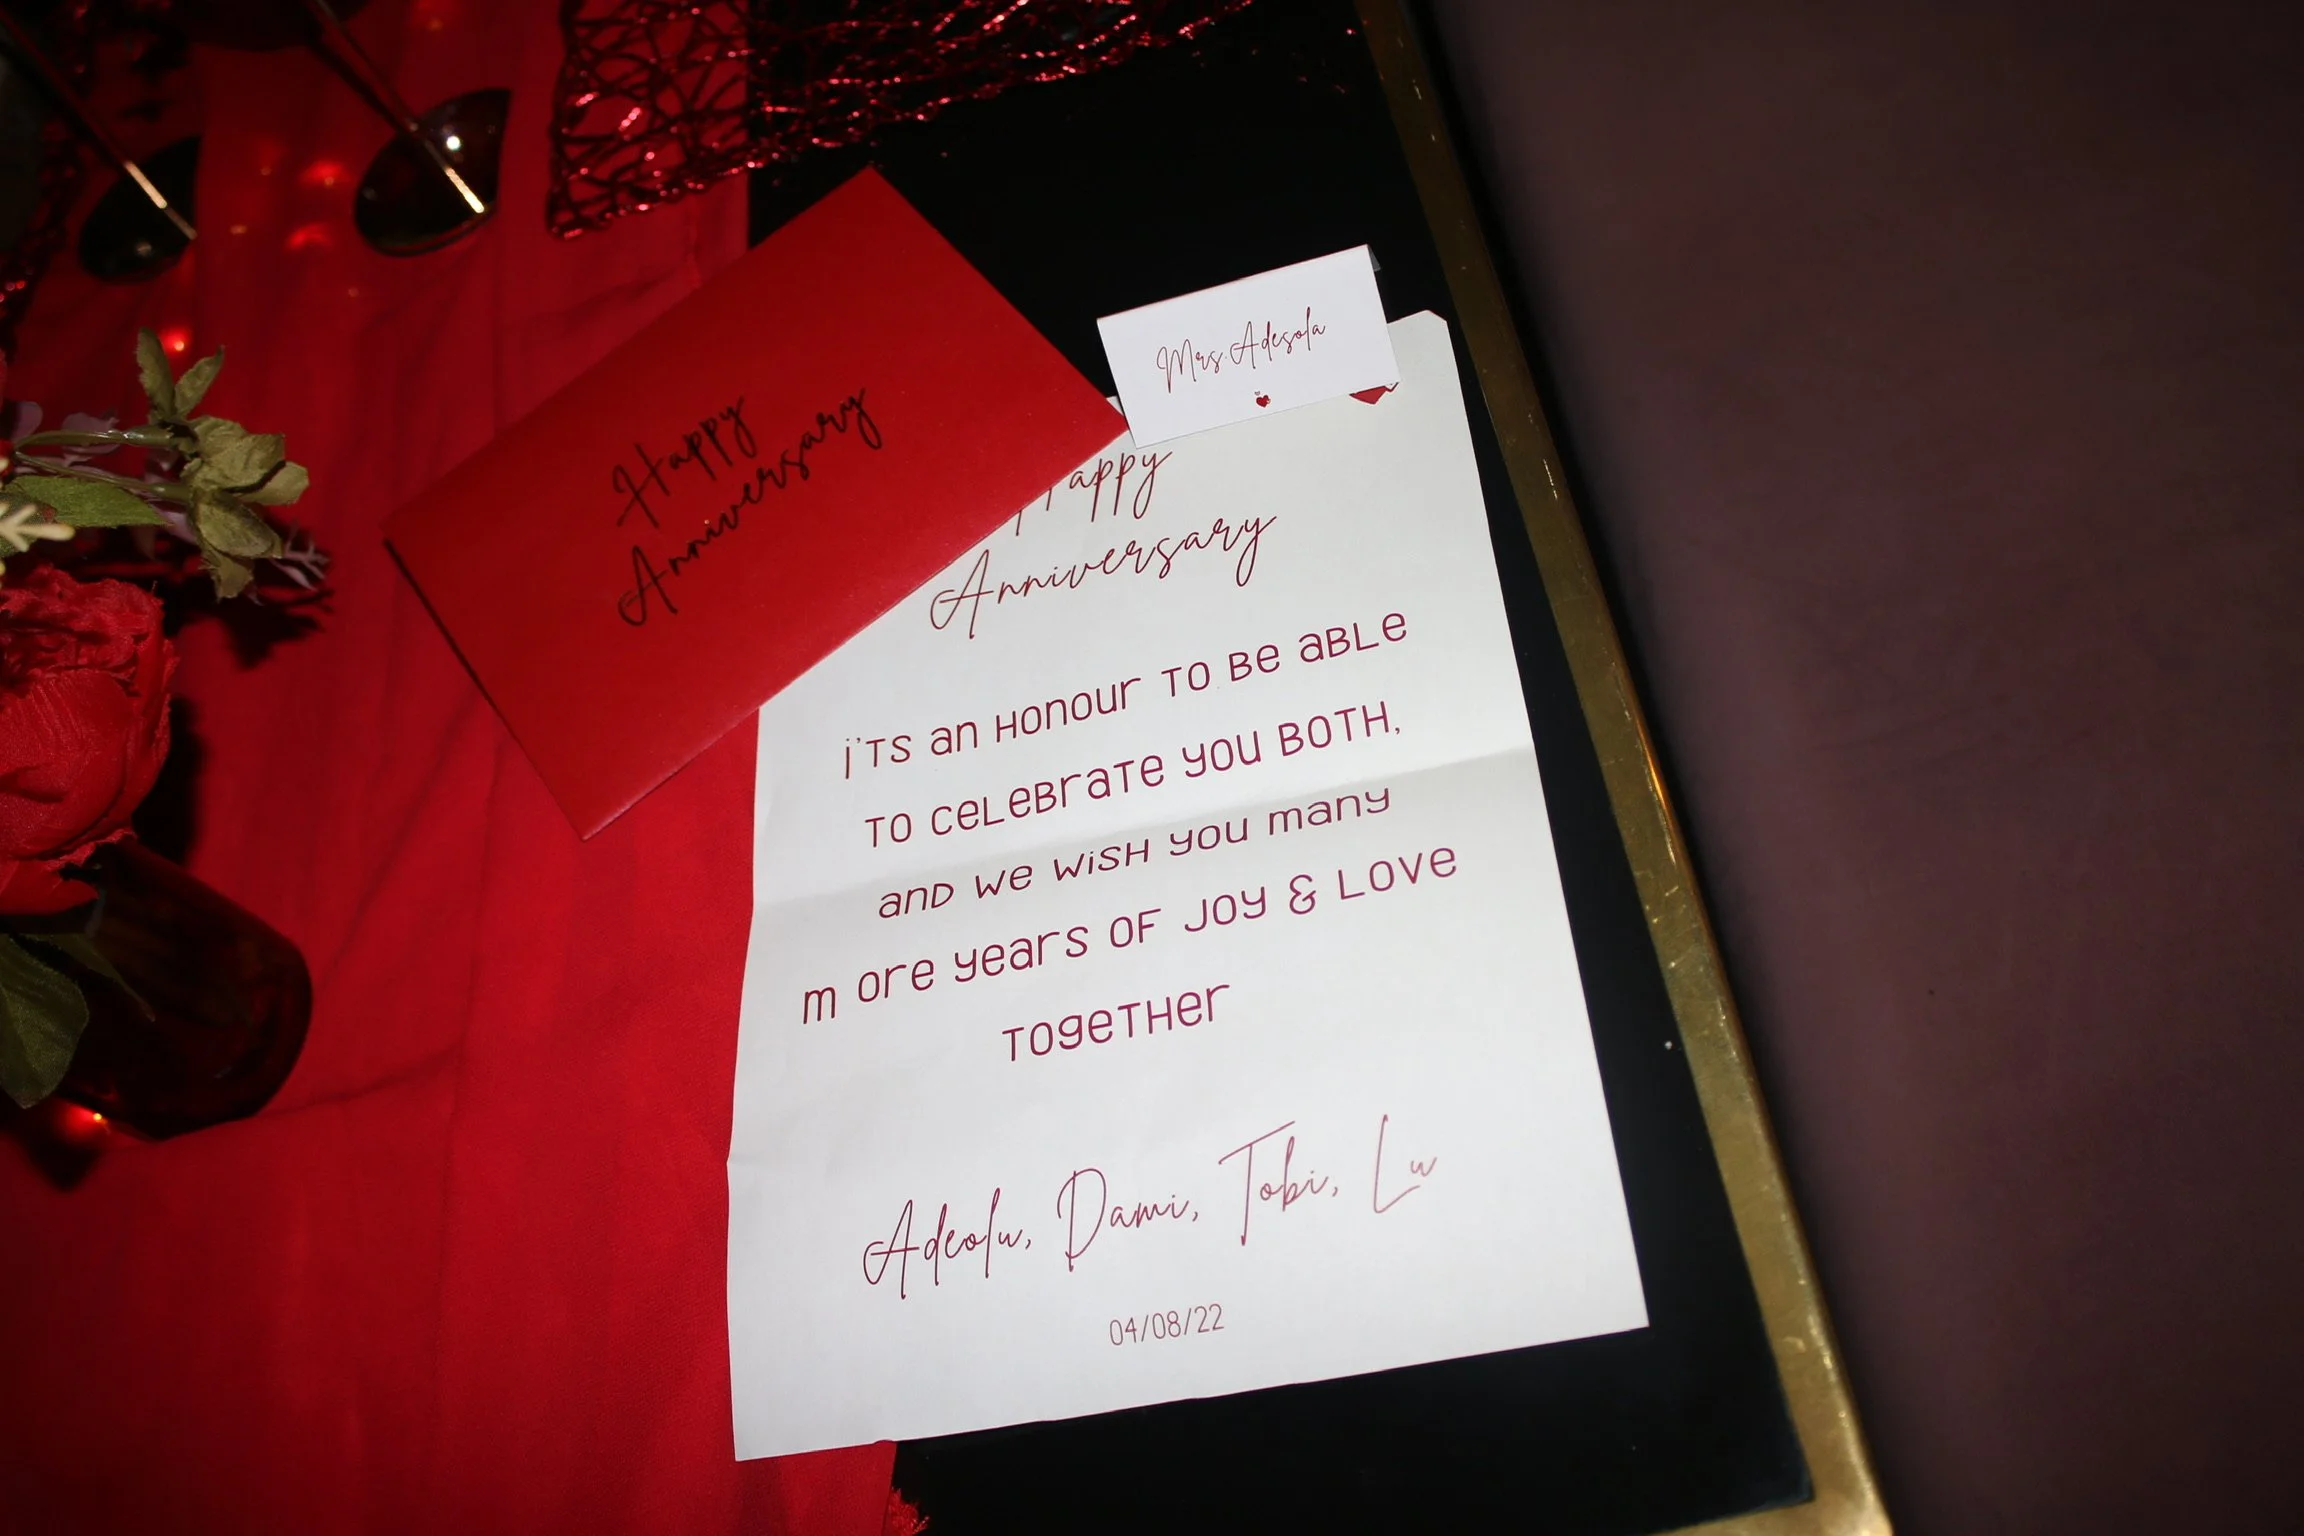 Happy
Anniversary
Mrs. Adesola
Happy
Anniversary
i'TS an HONOUr TO Be aBLe
TO CeLeBraTe you BOTH,
and we wiSH you many
m ore years OF Joy & Love
TOgeTHer
Adeolu, Dami, Tobi, Lu
04/08/22